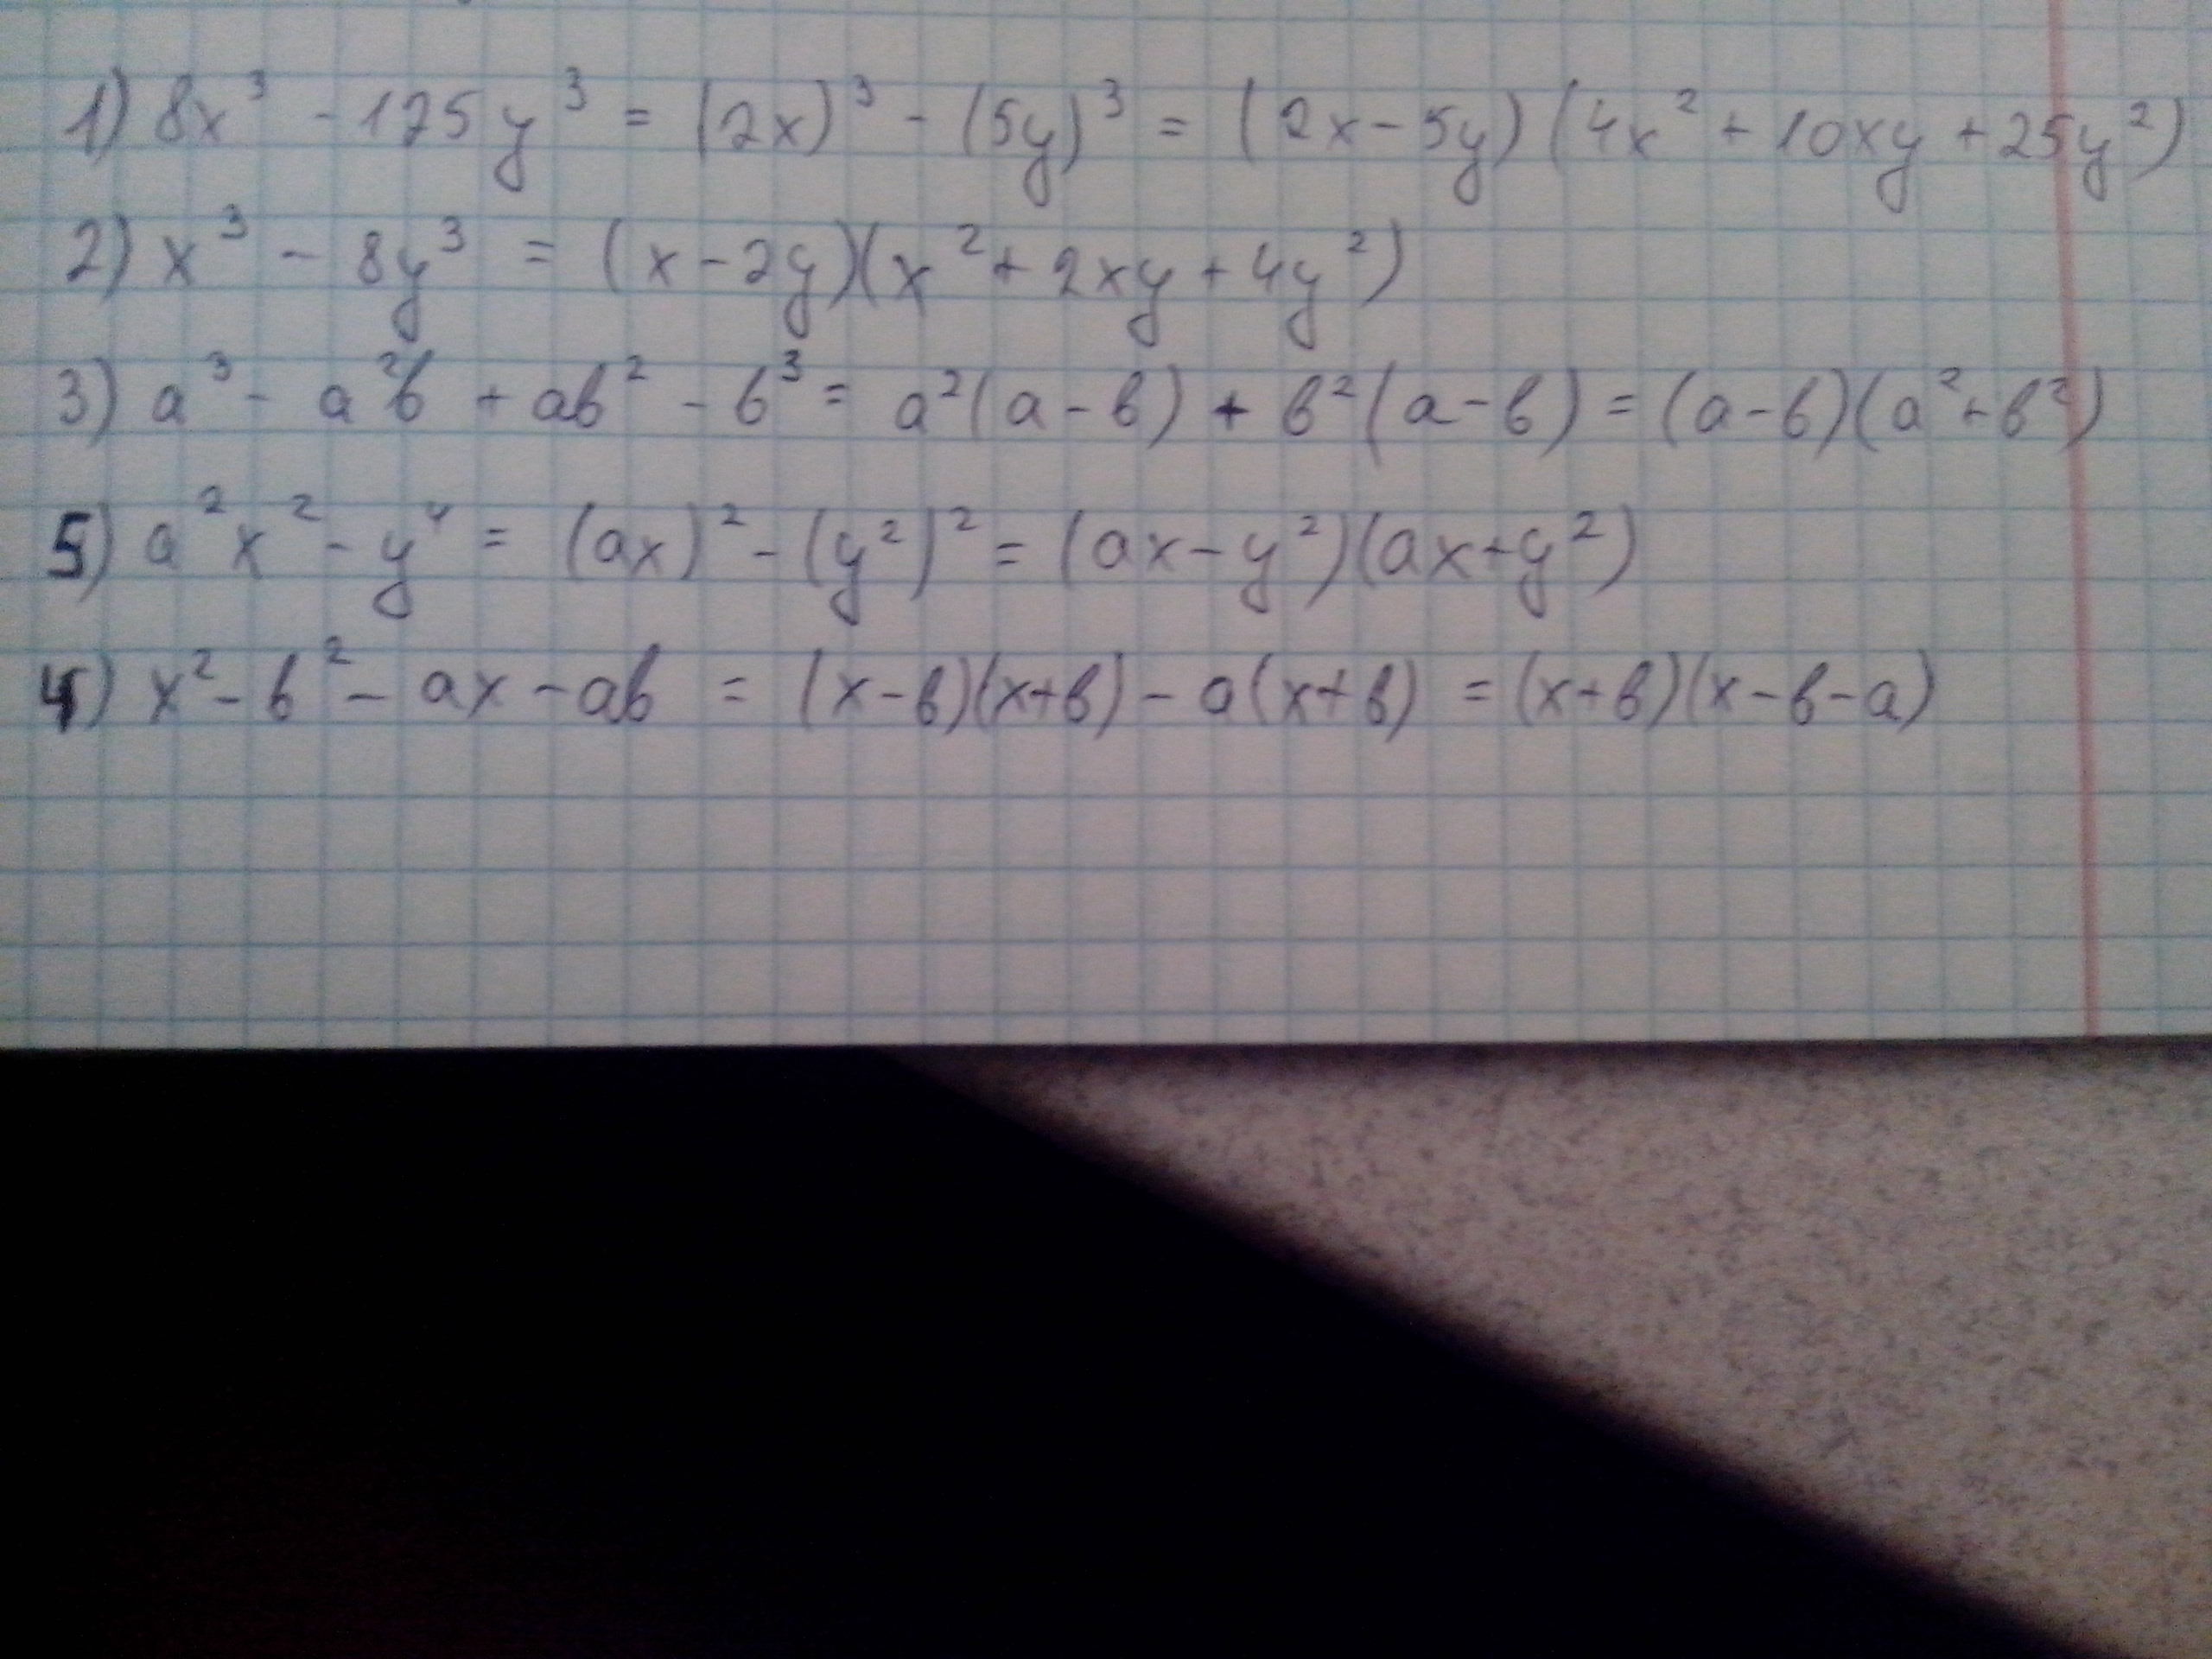 1) 8x³ - 125y³ = (2x)³ - (5y)³ = (2x-5y)(4x²+10xy+25y²)
2) x³ - 8y³ = (x-2y)(x²+2xy+4y²)
3) a³ - a²b + ab² - b³ = a²(a-b) + b²(a-b) = (a-b)(a²+b²)
5) a²x² - y⁴ = (ax)² - (y²)² = (ax-y²)(ax+y²)
4) x² - b² - ax - ab = (x-b)(x+b) - a(x+b) = (x+b)(x-b-a)